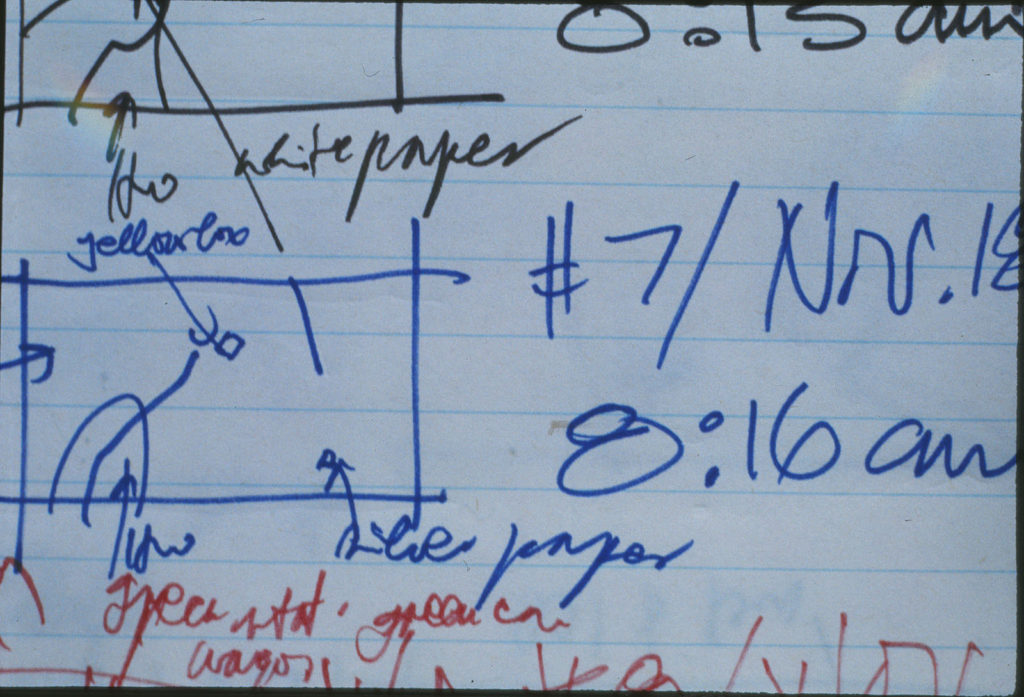 8:15 am
white paper
yellow box
#7/Nov. 18
8:16 am
silver paper
green stat. green car
wagon